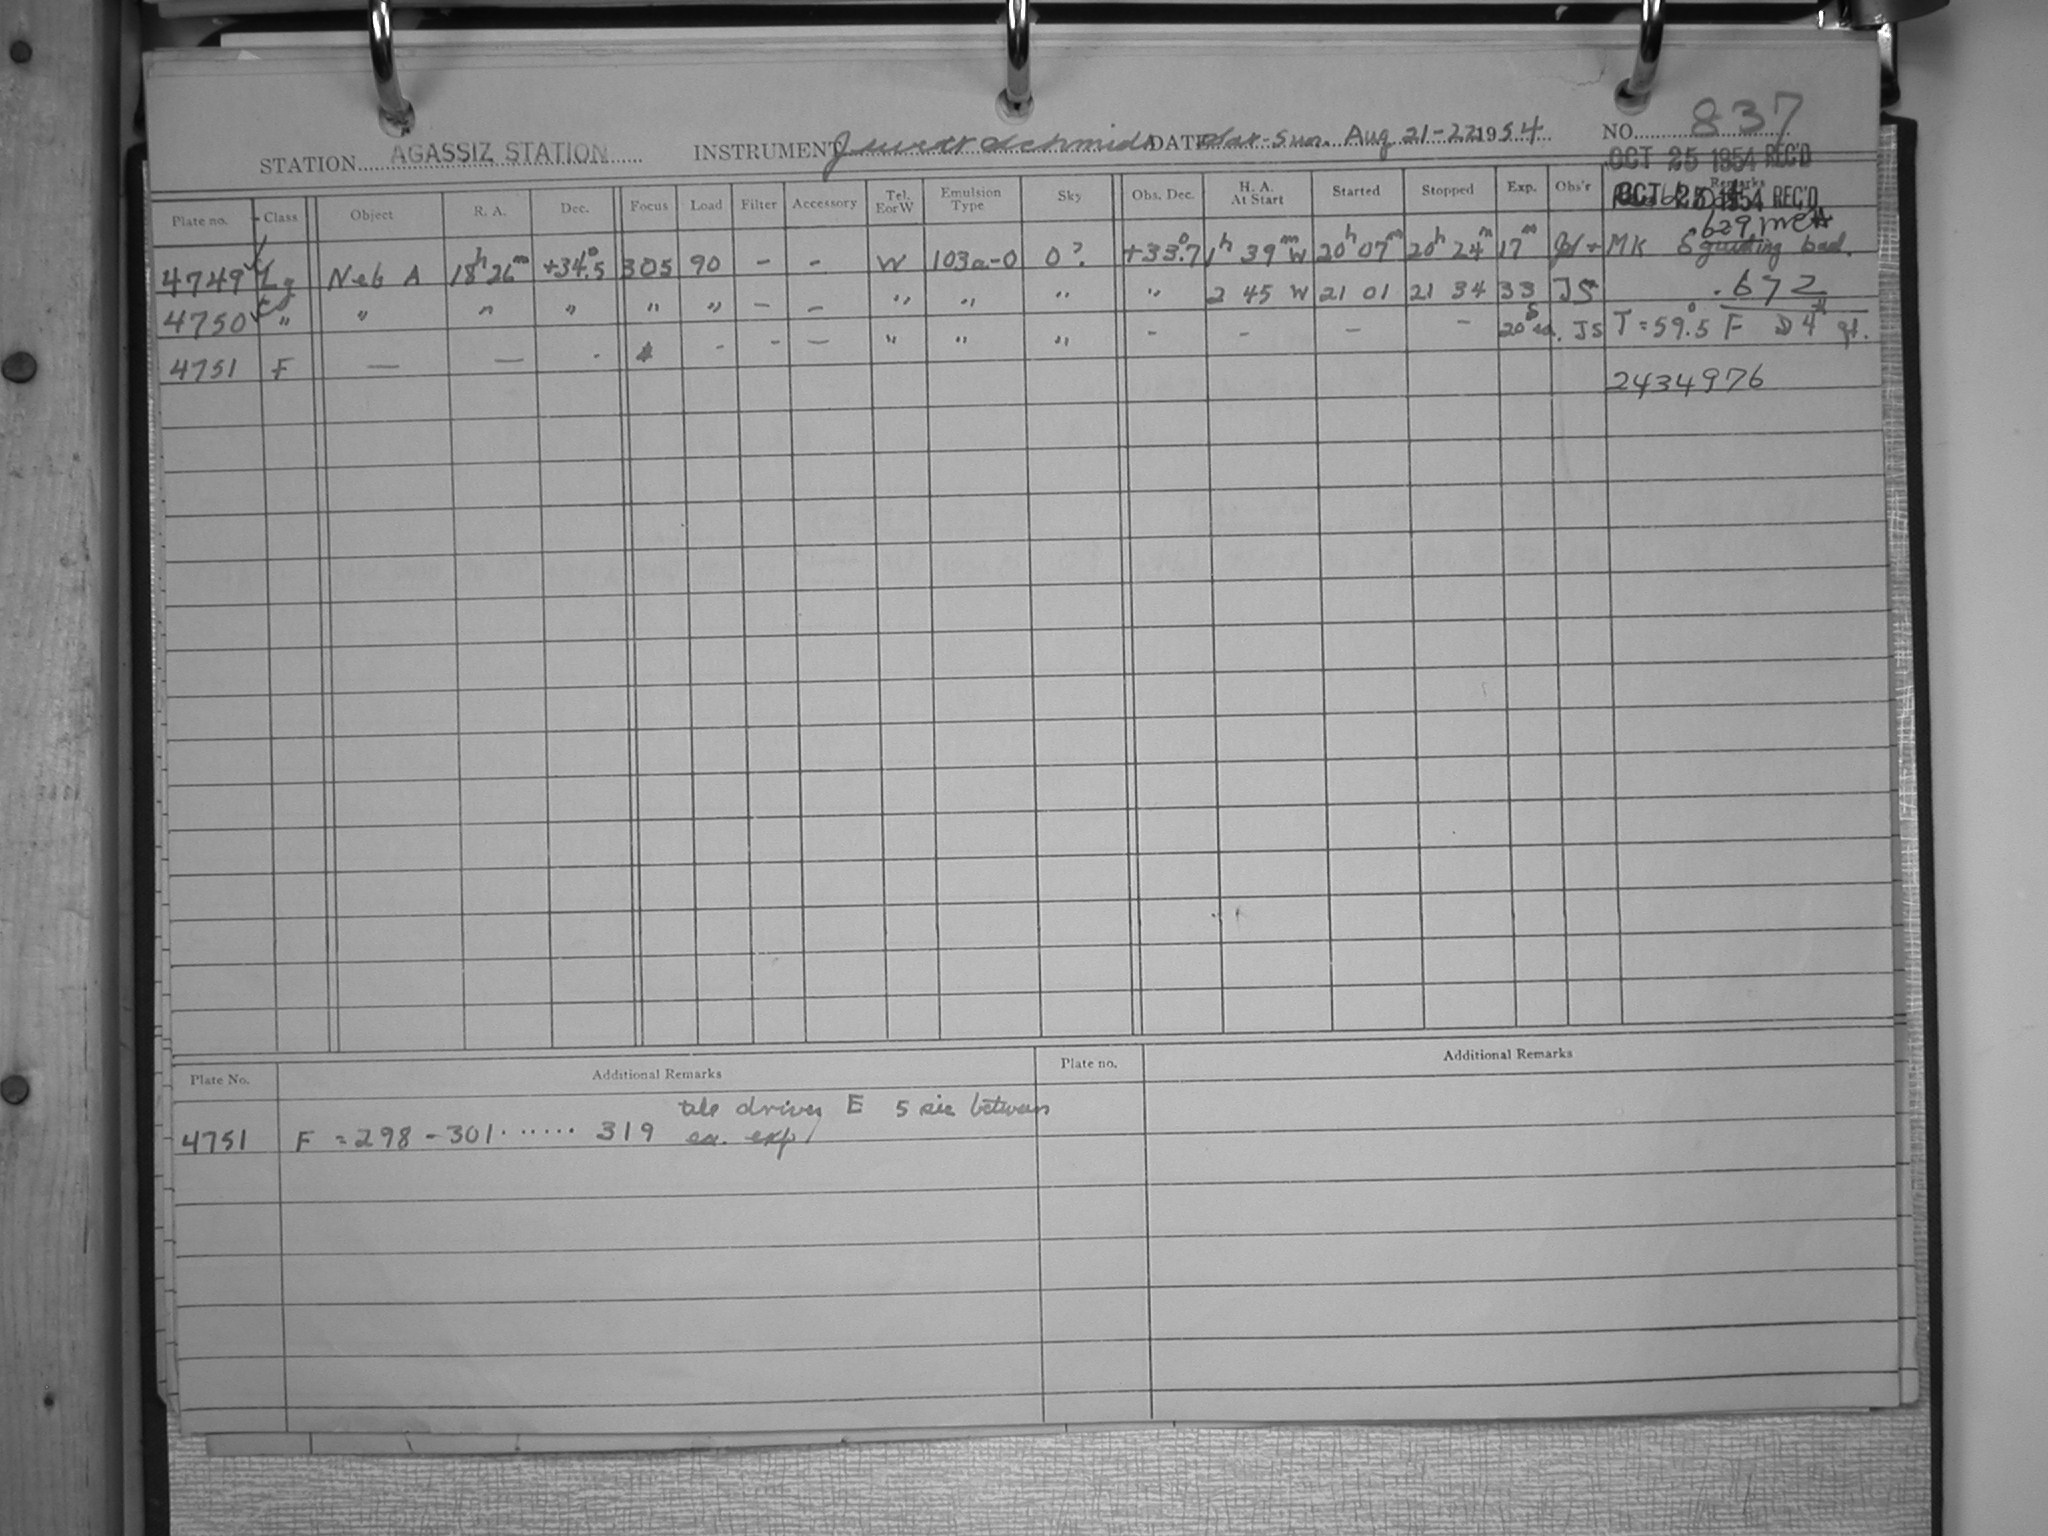 STATION AGASSIZ STATION INSTRUMENT Jewett Schmidt DATE Sat-Sun. Aug 21-22 1954 NO. 837
OCT 25 1954 REC'D
OCT 25 1954 REC'D
Plate no. Class Object R. A. Dec. Focus Load Filter Accessory Tel. E or W Emulsion Type Sky Obs. Dec. H. A. At Start Started Stopped Exp. Obs'r Remarks
.629
4749 Lg Neb A 18h 26m +34.°5 305 90 - - W 103a-O 0? +33.°7 1h 39m W 20h 07m 20h 24m 17m + MK guiding bad.
4750 " " " " " " - - " " " " 2 45 W 21 01 21 34 33 JS .672
4751 F — — - - - — " " " - - — - 20s JS T = 59.5° F D4 
2434976
Plate No. Additional Remarks Plate no. Additional Remarks
4751 F = 298 - 301 ...... 319 tel driving E 5 sec between
ea. exp